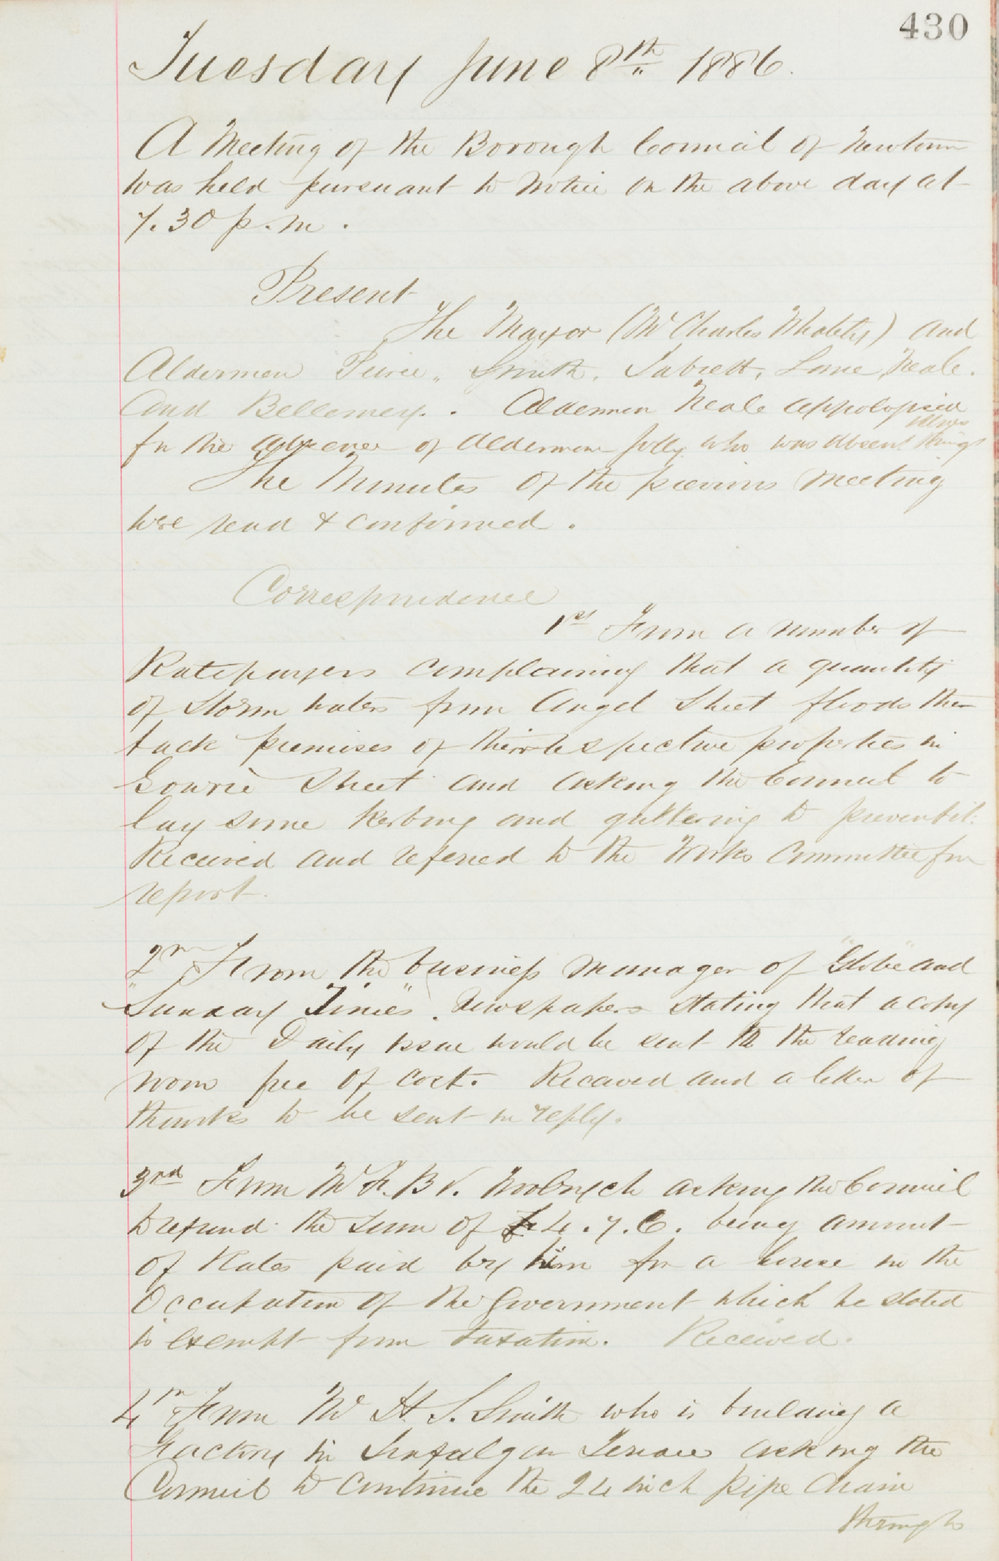 430
Tuesday June 8th 1886.
A Meeting of the Borough Council of Newtown
was held pursuant to notice on the above day at
7.30 p.m.
Present
The Mayor (Mr Charles Whately) and
Aldermen Pierce, Smith, Sabrett, Lane, Neale.
and Bellemey. Aldermen Neale appologised
for the absence of Alderman Jolly who was absent
The Minutes of the previous Meeting
were read & confirmed.
Correspondence
1st From a number of
Ratepayers complaining that a quantity
of Storm water from Angel Street floods the
back premises of their respective properties in
Gowrie Street and asking the Council to
lay some kerbing and guttering to prevent it.
Received and referred to the Works Committee for
report.
2nd From the business manager of "Globe" and
"Sunday Times". Newspapers stating that a copy
of the Daily Issue would be sent to the reading
room free of cost. Received and a letter of
thanks to be sent in reply.
3rd From Mr F. B. V. asking the Council
to refund the sum of £4.7.6. being amount
of Rates paid by him for a house in the
Occupation of the Government which he stated
is exempt from taxation. Received.
4th From Mr H. S. Smith who is building a
Factory in Trafalgar Terrace asking the
Council to continue the 24 inch pipe drain
through